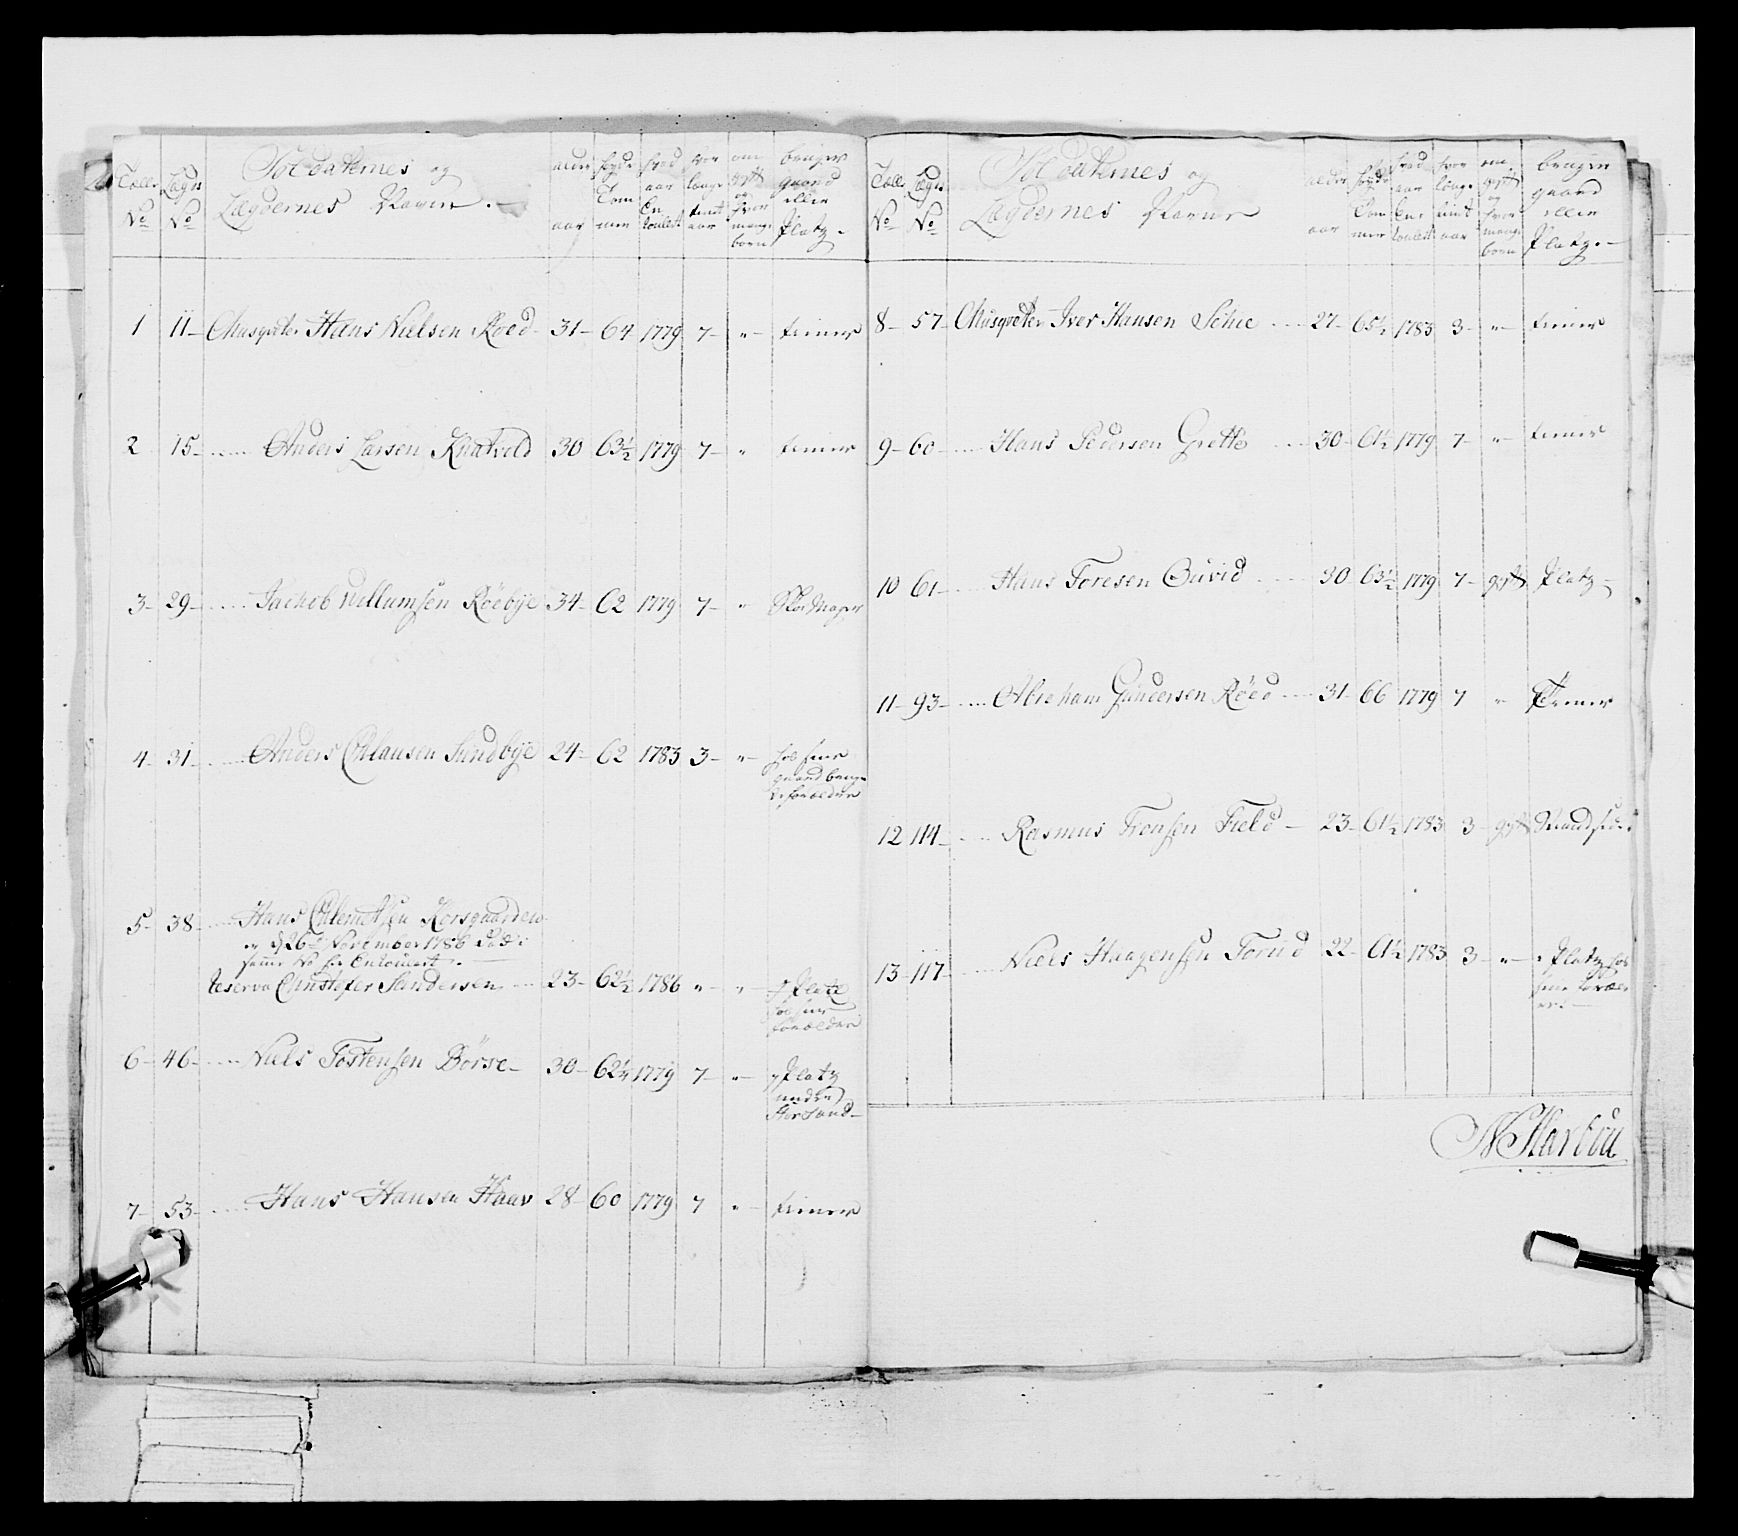 Talls No Lægds No Soldaternes og Lægdernes Navne alder aar høyde Tommer hvad aar En roulert hvor længe tient aar om gift og hvor mange børn bruger gaard eller Platz
1 11 Musqveter Hans Nielsen Roed 31 64 1779 7 " tiener
2 15 Anders Larsen Knatvold 30 63½ 1779 7 " tiener
3 29 Jachob Willumsen Röebÿe 34 62 1779 7 "
4 31 Anders Clausen Sundbÿe 24 62 1783 3 " hos sine
gaard bruge
de forældre
5 38 Hans Clemetsen Korsgaarden
d 26 November 1786
samme No er Enroulert
reserve Christofer Andersen 23 62½ 1786 " " Platz
hos sine
forældre
6 46 Niels Tostensen Börse 30 62¼ 1779 7 " Platz
under
Storsand
7 53 Hans Hansen Haav 28 60 1779 7 " tiener
Talls No Lægds No Soldaternes og Lægdernes Navne alder aar høyde Tommer hvad aar En roulert hvor længe tient aar om gift og hvor mange børn bruger gaard eller Platz
8 57 Musqveter Iver Hansen Schie 27 65½ 1783 3 " tiener
9 60 Hans Pedersen Grette 30 61½ 1779 7 " tiener
10 61 Hans Toresen 30 63½ 1779 7 gift Platz
11 93 Abraham Gundersen Röed 31 66 1779 7 " Tiener
12 114 Rasmus Field 23 61½ 1783 3 gift
13 117 Niels Haagensen Torud 22 61½ 1783 3 " Platz hos
sine foræl
dre